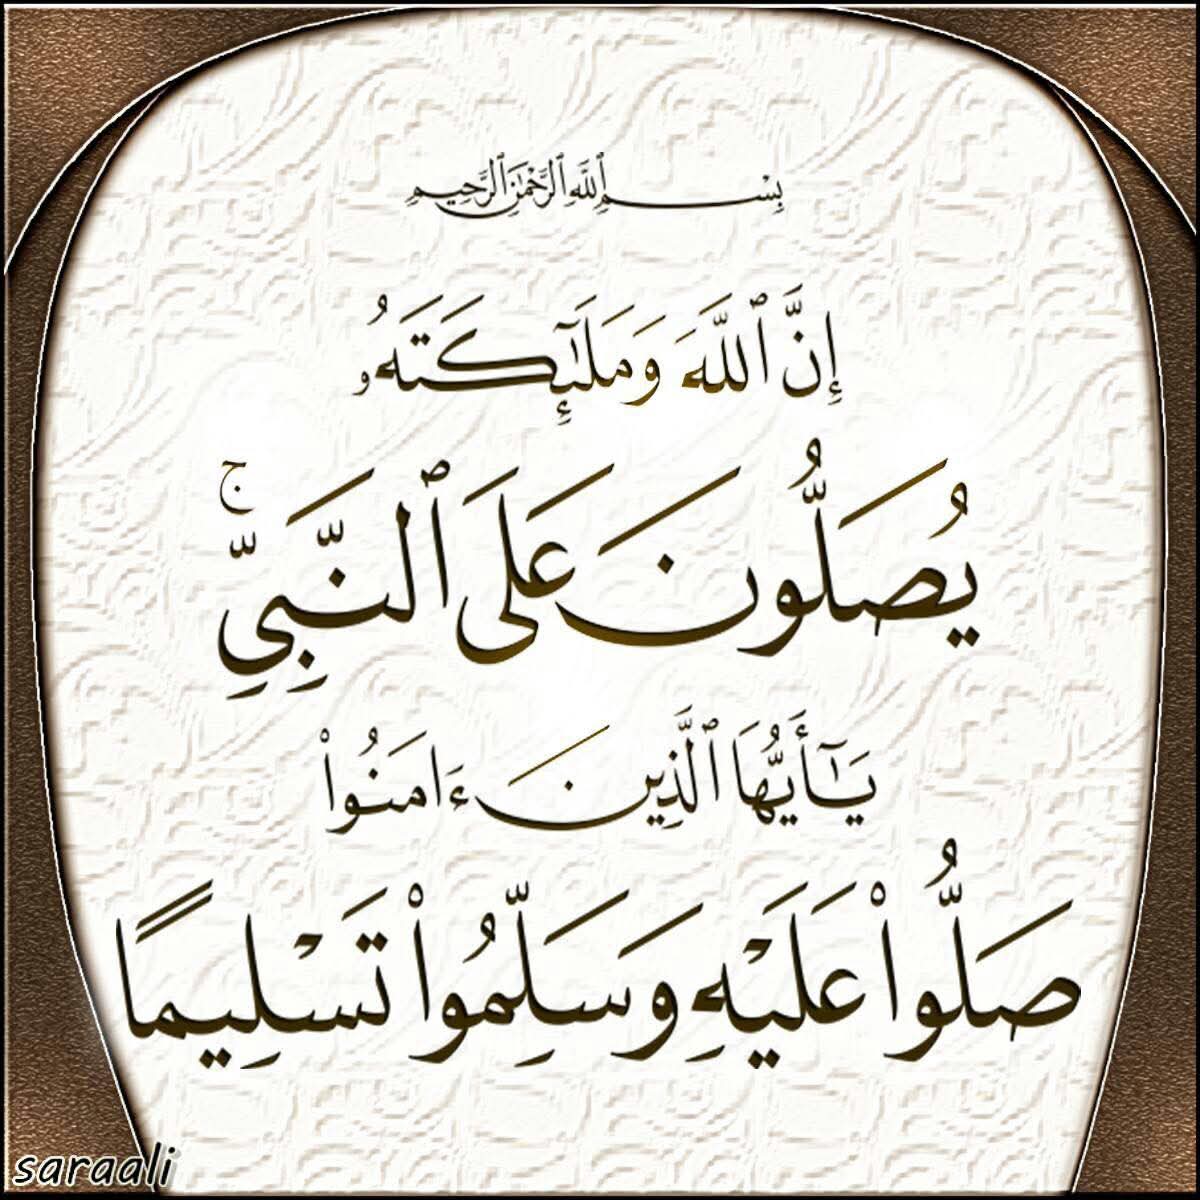 بِسْمِ ٱللَّهِ ٱلرَّحْمَٰنِ ٱلرَّحِيمِ
إِنَّ ٱللَّهَ وَمَلَـٰٓئِكَتَهُۥ
يُصَلُّونَ عَلَى ٱلنَّبِىِّ ۚ
يَـٰٓأَيُّهَا ٱلَّذِينَ ءَامَنُوا۟
صَلُّوا۟ عَلَيْهِ وَسَلِّمُوا۟ تَسْلِيمًا
saraali